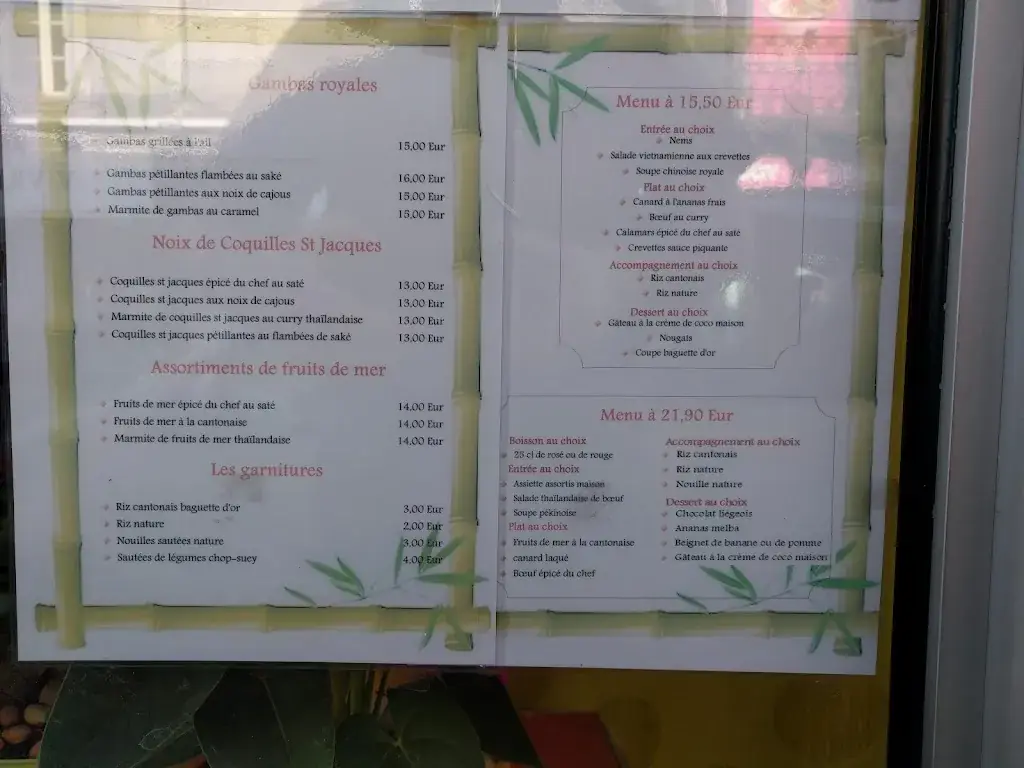 Gambas royales
Gambas grillées à l'ail 15,00 Eur
Gambas pétillantes flambées au saké 16,00 Eur
Gambas pétillantes aux noix de cajous 15,00 Eur
Marmite de gambas au caramel 15,00 Eur
Noix de Coquilles St Jacques
Coquilles st jacques épicé du chef au saté 13,00 Eur
Coquilles st jacques aux noix de cajous 13,00 Eur
Marmite de coquilles st jacques au curry thaïlandaise 13,00 Eur
Coquilles st jacques pétillantes au flambées de saké 13,00 Eur
Assortiments de fruits de mer
Fruits de mer épicé du chef au saté 14,00 Eur
Fruits de mer à la cantonaise 14,00 Eur
Marmite de fruits de mer thaïlandaise 14,00 Eur
Les garnitures
Riz cantonais baguette d'or 3,00 Eur
Riz nature 2,00 Eur
Nouilles sautées nature 3,00 Eur
Sautées de légumes chop-suey 4,00 Eur
Menu à 15,50 Eur
Entrée au choix
Nems
Salade vietnamienne aux crevettes
Soupe chinoise royale
Plat au choix
Canard à l'ananas frais
Bœuf au curry
Calamars épicé du chef au saté
Crevettes sauce piquante
Accompagnement au choix
Riz cantonais
Riz nature
Dessert au choix
Gâteau à la crème de coco maison
Nougats
Coupe baguette d'or
Menu à 21,90 Eur
Boisson au choix
25 cl de rosé ou de rouge
Entrée au choix
Assiette assortis maison
Salade thaïlandaise de bœuf
Soupe pékinoise
Plat au choix
Fruits de mer à la cantonaise
canard laqué
Bœuf épicé du chef
Accompagnement au choix
Riz cantonais
Riz nature
Nouille nature
Dessert au choix
Chocolat liégeois
Ananas melba
Beignet de banane ou de pomme
Gâteau à la crème de coco maison